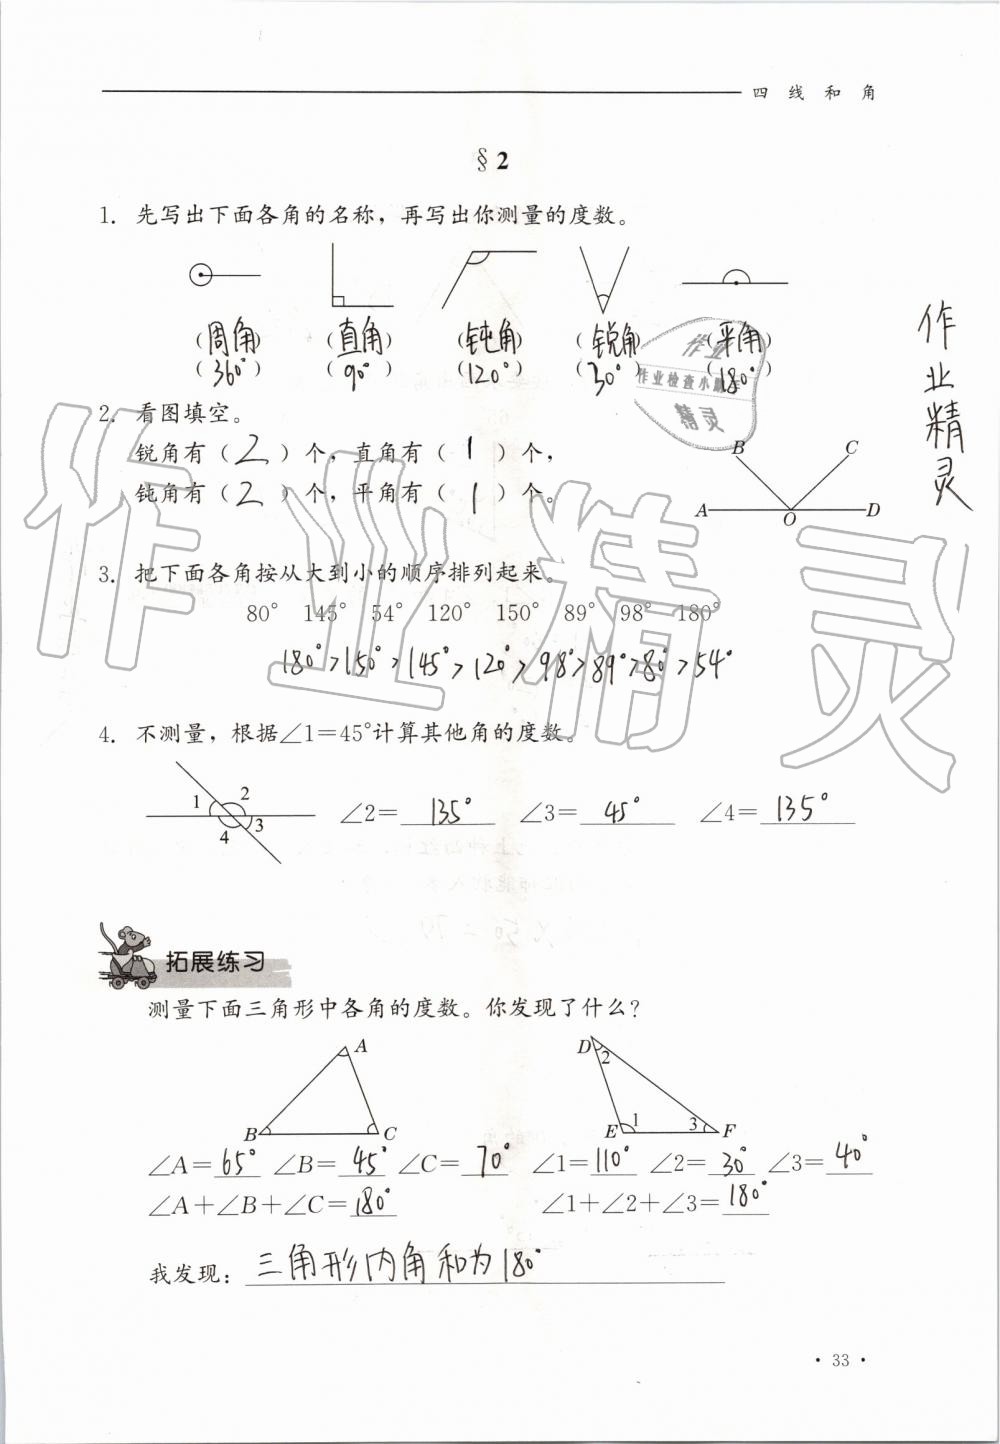 四 线 和 角
§ 2
1. 先写出下面各角的名称，再写出你测量的度数。
(周角) (直角) (钝角) (锐角) (平角)
(360°) (90°) (120°) (30°) (180°)
作业
作业检查小助手
精灵
作业精灵
2. 看图填空。
锐角有（ 2 ）个，直角有（ 1 ）个，
钝角有（ 2 ）个，平角有（ 1 ）个。
B C
A O D
3. 把下面各角按从大到小的顺序排列起来。
80° 145° 54° 120° 150° 89° 98° 180°
180°>150°>145°>120°>98°>89°>80°>54°
作业精灵
4. 不测量，根据∠1=45°计算其他角的度数。
1 2 3 4
∠2= 135° ∠3= 45° ∠4= 135°
拓展练习
测量下面三角形中各角的度数。你发现了什么？
A B C
D 2 E 1 3 F
∠A= 65° ∠B= 45° ∠C= 70° ∠1= 110° ∠2= 30° ∠3= 40°
∠A+∠B+∠C= 180° ∠1+∠2+∠3= 180°
我发现：三角形内角和为180°
· 33 ·